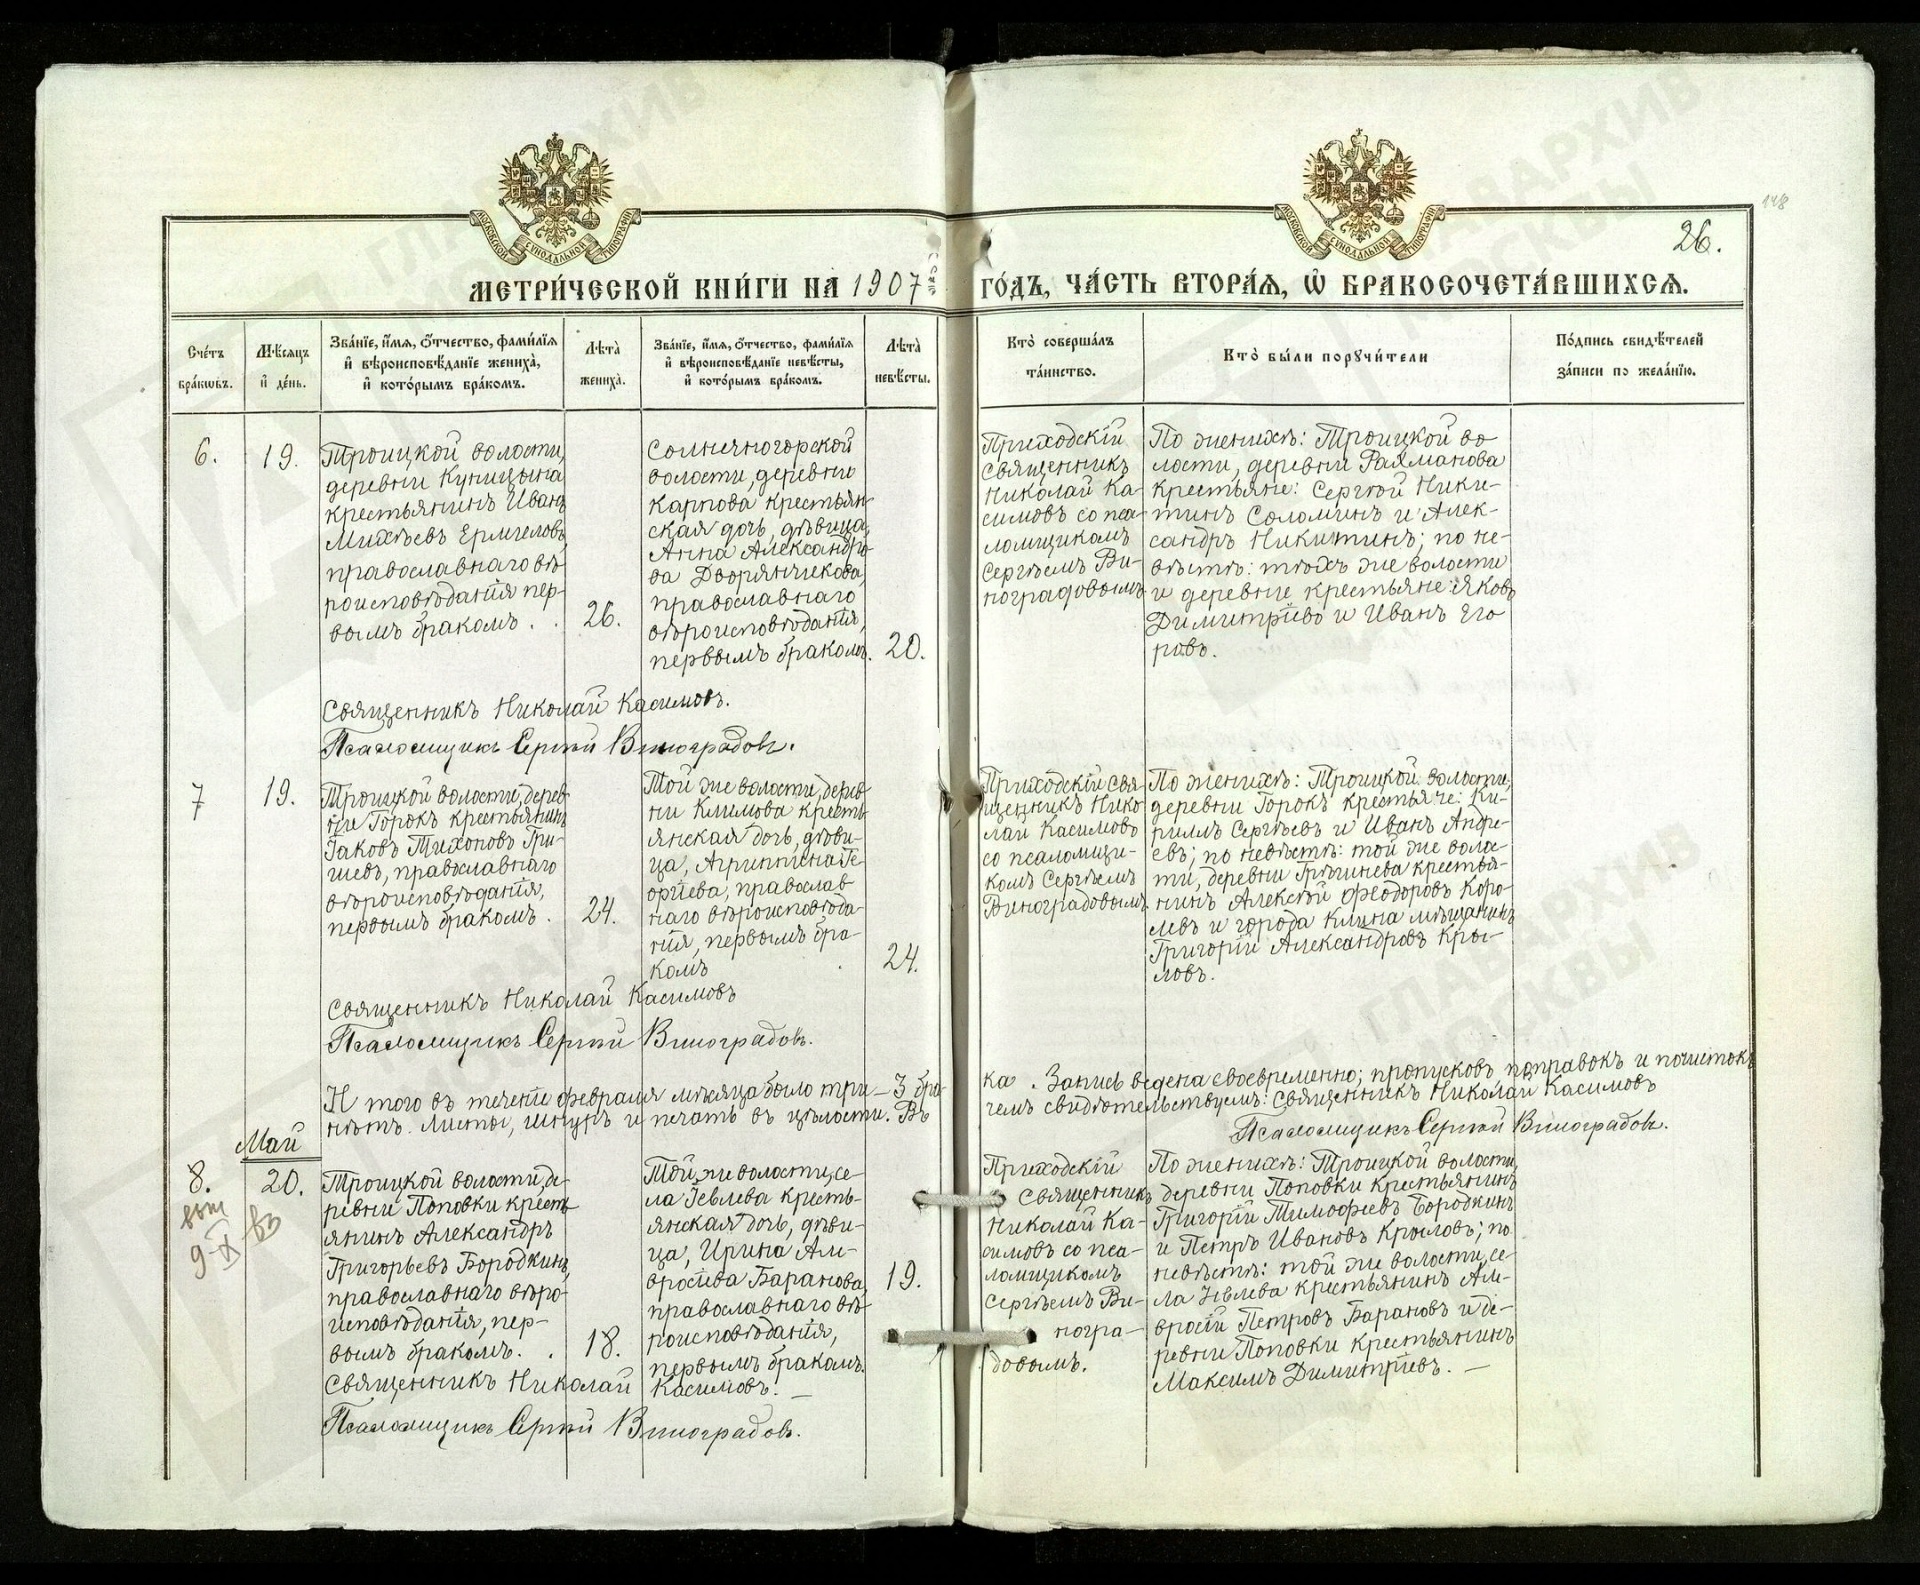 МОСКОВСКОЙ СѴНОДАЛЬНОЙ ТИПОГРАФІИ
МОСКОВСКОЙ СѴНОДАЛЬНОЙ ТИПОГРАФІИ
118
26.
МЕТРИ́ЧЕСКОЙ КНИ́ГИ НА 1907 ГО́ДЪ, ЧА́СТЬ ВТОРА́Я, Ѡ҆ БРАКОСОЧЕТА́ВШИХСЯ.
Сче́тъ
бра́кѡвъ.
Мѣ́сяцъ
и҆ де́нь.
Зва́нїе, и҆́мя, ѻ҆́тчество, фами́лїя
и҆ вѣроисповѣ́данїе жениха̀,
и҆ кото́рымъ бра́комъ.
Лѣта̀
жениха̀.
Зва́нїе, и҆́мя, ѻ҆́тчество, фами́лїя
и҆ вѣроисповѣ́данїе невѣ́сты,
и҆ кото́рымъ бра́комъ.
Лѣта̀
невѣ́сты.
Кто̀ соверша́лъ
та́инство.
Кто̀ бы́ли порꙋчи́тели
По́дпись свидѣ́телей
за́писи по жела́нїю.
6.
19.
Троицкой волости,
деревни Куницына
крестьянинъ Иванъ
Михѣевъ Ермиловъ,
православнаго вѣ-
роисповѣданія пер-
вымъ бракомъ.
26.
Солнечногорской
волости, деревни
Карпова крестьян-
ская дочь, дѣвица,
Анна Александро-
ва Дворянчикова,
православнаго
вѣроисповѣданія,
первымъ бракомъ.
20.
Приходскій
священникъ
Николай Ка-
симовъ со пса-
ломщикомъ
Сергѣемъ Ви-
ноградовымъ
По женихѣ: Троицкой во
лости, деревни Рахманова
крестьяне: Сергѣй Ники-
тинъ Соломинъ и Алек-
сандръ Никитинъ; по не-
вѣстѣ: тѣхъ же волости
и деревни крестьяне: Яковъ
Димитріевъ и Иванъ Его
ровъ.
Священникъ Николай Касимовъ.
Псаломщикъ Сергѣй Виноградовъ.
7
19.
Троицкой волости, дерев-
ни Горокъ крестьянинъ
Іаковъ Тихоновъ Гри-
шевъ, православнаго
вѣроисповѣданія,
первымъ бракомъ.
24.
Той же волости, дерев-
ни Климова кресть-
янская дочь, дѣви-
ца, Агриппина Ге-
оргіева, православ
наго вѣроисповѣда-
нія, первымъ бра-
комъ
24.
Приходскій свя
щенникъ Нико
лай Касимовъ
со псаломщи-
комъ Сергѣемъ
Виноградовымъ.
По женихѣ: Троицкой волости,
деревни Горокъ крестьяне: Ки-
риллъ Сергѣевъ и Иванъ Андре-
евъ; по невѣстѣ: той же волос-
ти, деревни крестья-
нинъ Алексѣй Феодоровъ Коро-
левъ и города Клина мѣщанинъ
Григорій Александровъ Кры-
ловъ.
Священникъ Николай Касимовъ
Псаломщикъ Сергѣй Виноградовъ.
И того въ теченіе февраля мѣсяца было три – 3 бра-
ка. Запись ведена своевременно; пропусковъ поправокъ и почистокъ
нѣтъ. Листы, шнуръ и печать въ цѣлости. Въ
чемъ свидѣтельствуемъ: Священникъ Николай Касимовъ
Псаломщикъ Сергѣй Виноградовъ.
Май
8.
20.
9-IX
Троицкой волости, де-
ревни Поповки кресть-
янинъ Александръ
Григорьевъ Бородкинъ,
православнаго вѣро-
исповѣданія, пер-
вымъ бракомъ.
18.
Той же волости, се-
ла Іевлева кресть-
янская дочь, дѣви-
ца, Ирина Ам-
вросіева Баранова,
православнаго вѣ-
роисповѣданія,
первымъ бракомъ.
19.
Приходскій
священникъ
Николай Ка-
симовъ со пса-
ломщикомъ
Сергѣемъ Ви-
ногра-
довымъ.
По женихѣ: Троицкой волости,
деревни Поповки крестьянинъ
Григорій Тимофеевъ Бородкинъ
и Петръ Ивановъ Крыловъ; по
невѣстѣ: той же волости, се-
ла Іевлева крестьянинъ Ам-
вросій Петровъ Барановъ и де-
ревни Поповки крестьянинъ
Максимъ Димитріевъ. —
Священникъ Николай Касимовъ. —
Псаломщикъ Сергѣй Виноградовъ.
ГЛАВАРХИВ
МОСКВЫ